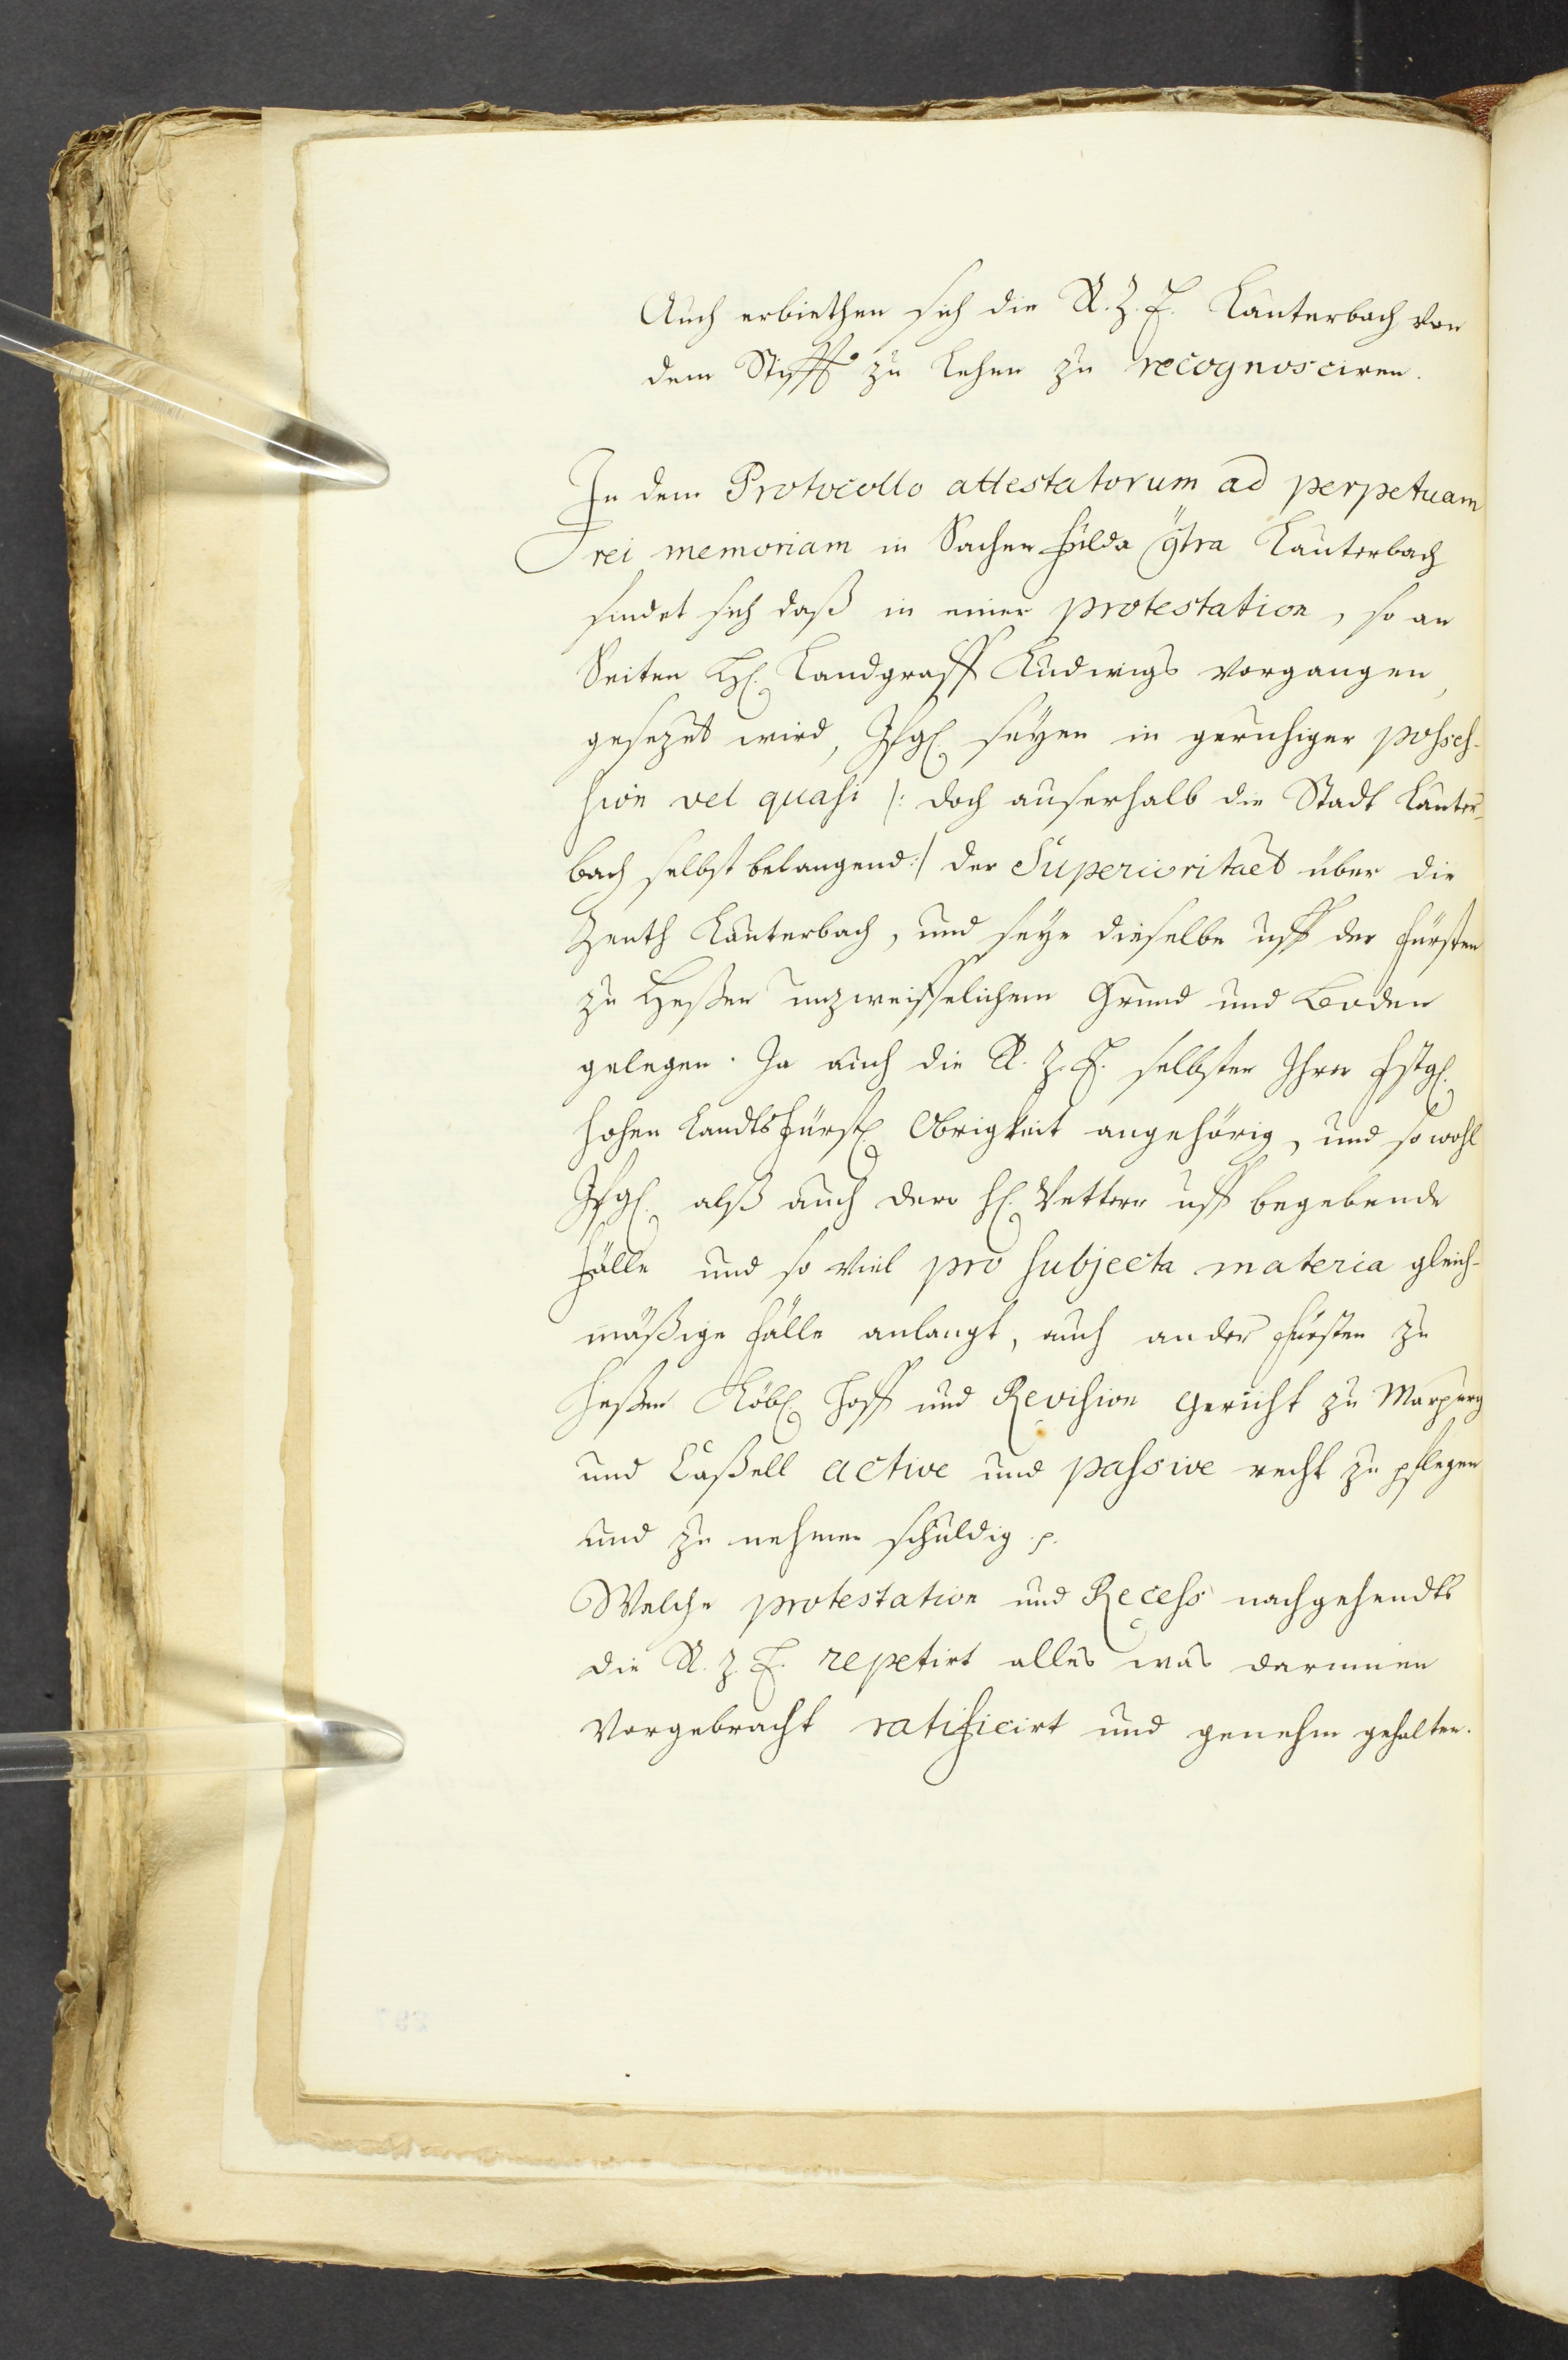 Auch erbiethen sich die R. Z. E. Lauterbach von
dem Stifft zu Lehen zu recognosciren.
In dem Protocollo attestatorum ad perpetuam
rei memoriam in Sachen Fulda gtra Lauterbach
findet sich daß in einer protestation, so an
Seiten H. Landgraff Ludwigs vorgangen,
gesezet wird, Ifgl. seyen in geruhiger posses-
sion vel quasi /: doch auserhalb die Stadt Lauter-
bach selbst belangend :/ der Superioritaet über die
Zenth Lauterbach, und seye dieselbe uff der Fürsten
zu Heßen unzweiffelichem Grund und Boden
gelegen. Ja auch die R. Z. E. selbsten Ihrer fstgl.
hohen Landtsfürstl Obrigkeit angehörig, und so wohl
Ifgl. alß auch dero H. Vettern uff begebende
Fälle und so viel pro subjecta materia gleich-
mäßige Fälle anlangt, auch an der Fürsten zu
Heßen Löbl Hoff und Revision Gericht zu Marpurg
und Caßell active und passive recht zu pflegen
und zu nehmen schuldig p.
Welche protestation und Recess nachgehendts
die R. Z. E. repetirt alles was darinnen
vorgebracht ratificirt und genehm gehalten.